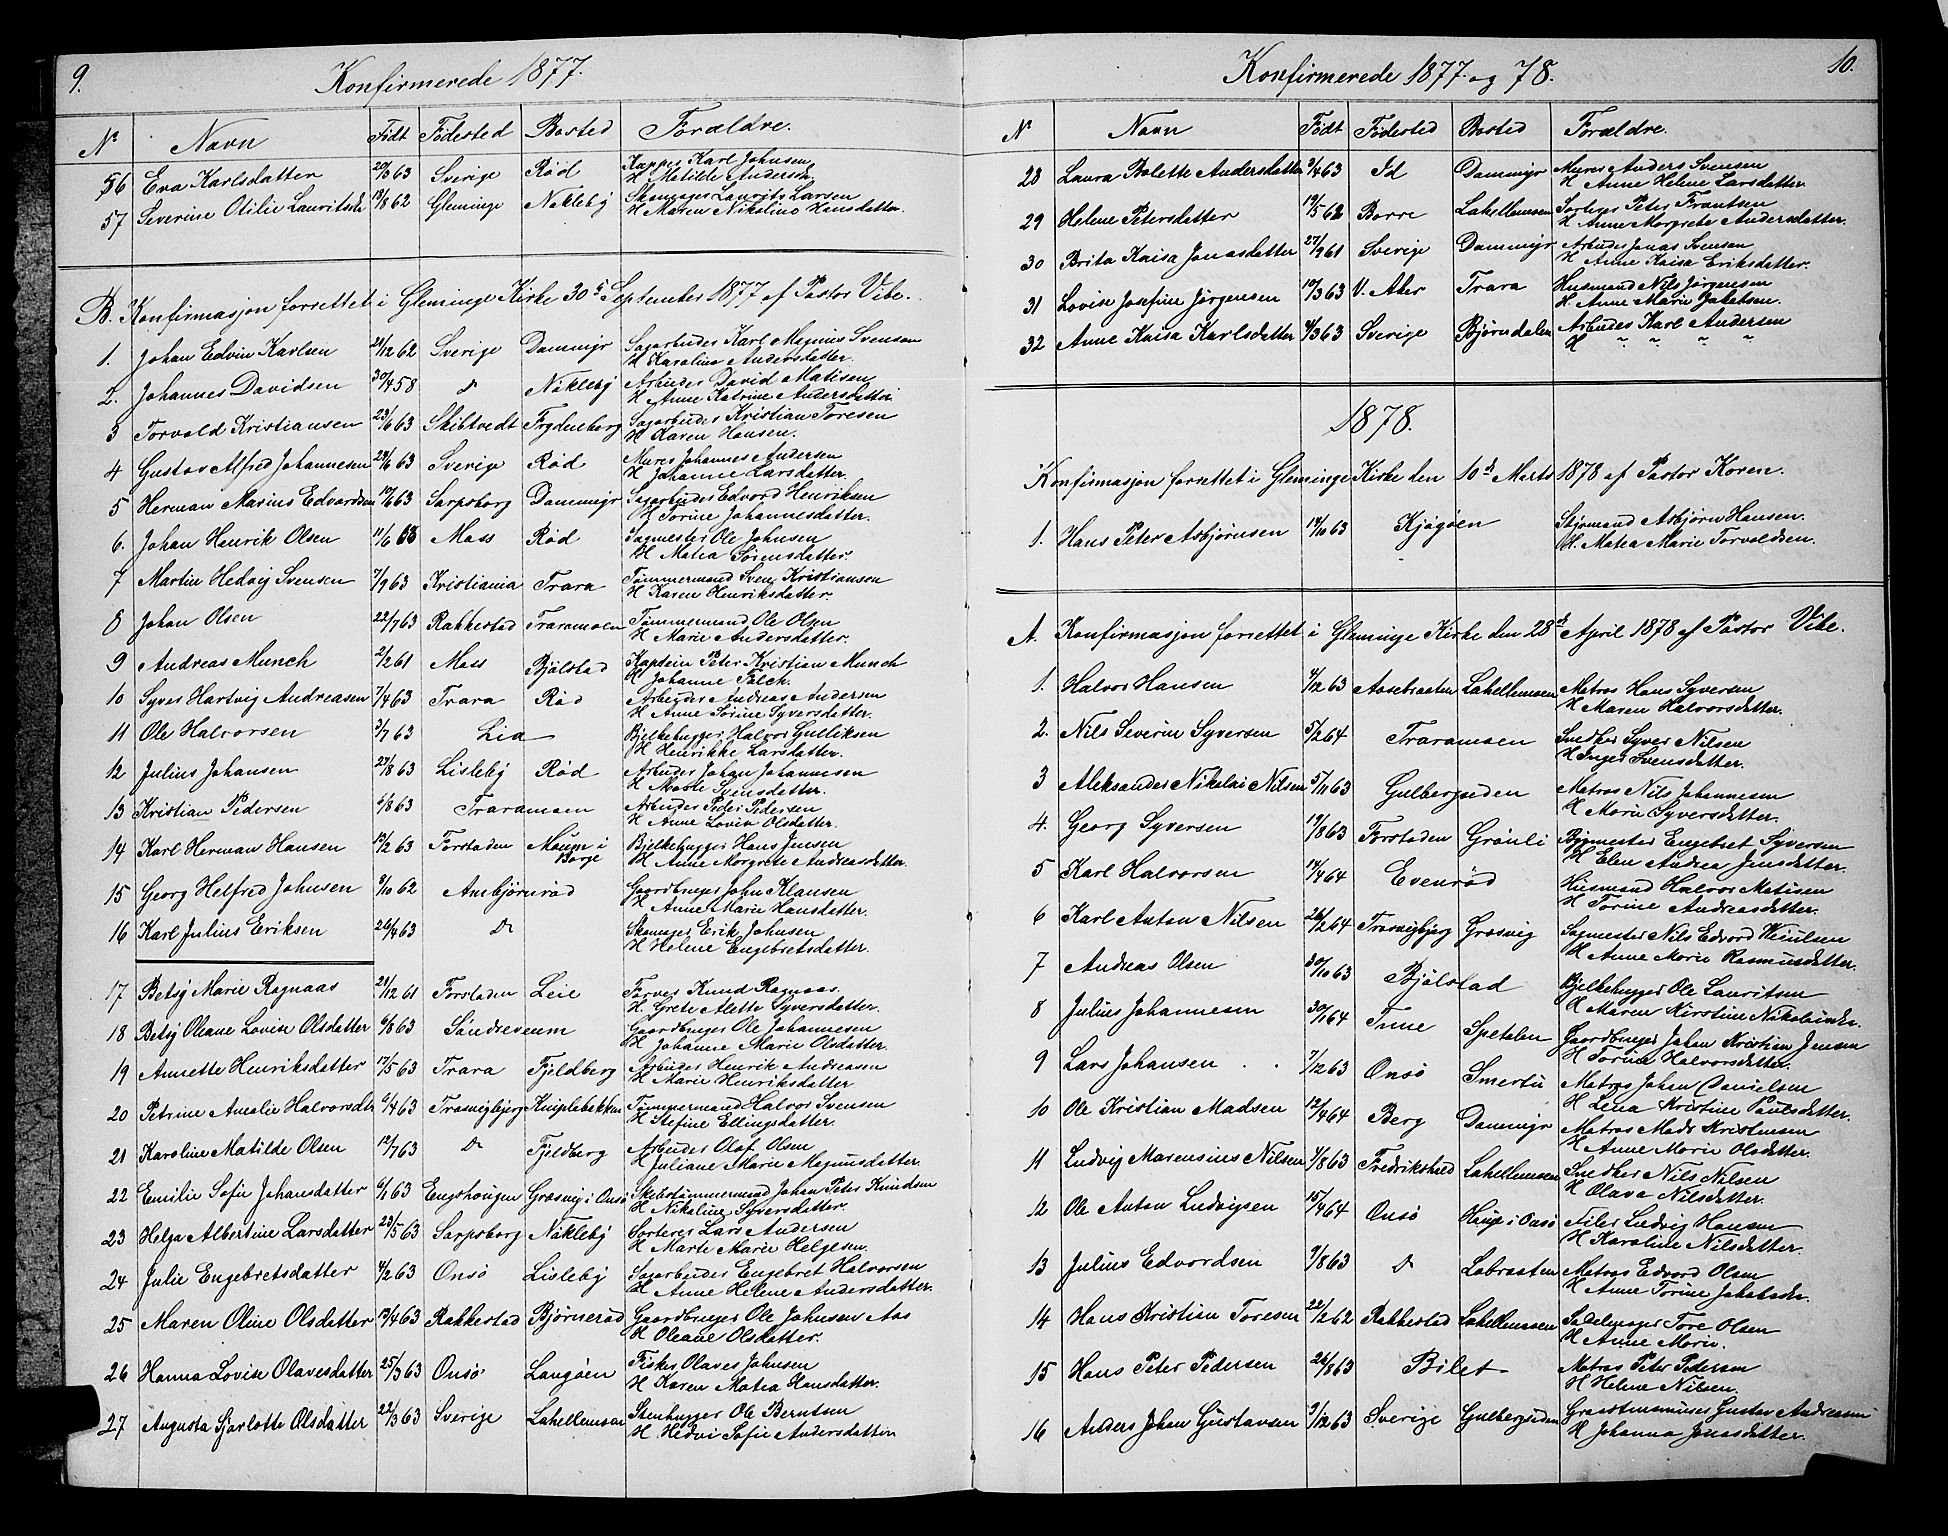 9.
Konfirmerede 1877.
No Navn Født Fødested Bosted Forældre.
56 Eva Karlsdatter 20/3 63 Sverige Rød Kapper Karl Johnsen
H Matilde Andersen
57 Severine Otilie Lauritsdt 18/8 62 Gleminge Nakleby Skomager Laurits Larsen
H Maren Nikoline Hansdatter.
B. Konfirmasjon forrettet i Gleminge Kirke 30te September 1877 af Pastor Vibe.
1. Johan Edvin Karlsen 24/12 62 Sverige Dammyr Sagarbeider Karl Magnus Svensen
H Karoline Andersdatter.
2. Johannes Davidsen 30/4 58 do Nakleby Arbeider David Matisen
H Anne Katrine Andersdatter
3 Torvald Kristiansen 23/6 63 Skibtvedt Trydenborg Sagarbeider Kristian Toresen
H Karen Hansen.
4 Gustav Alfred Johannesen 24/6 63 Sverige Rød Murer Johannes Andersen
H Johanne Larsdatter.
5 Herman Marius Edvardsen 10/6 63 Sarpsborg Dammyr Sagarbeider Edvard Henriksen
H Torine Johannesdatter.
6. Johan Henrik Olsen 11/6 63 Moss Rød Sagmester Ole Johnsen
H Matea Sørensdatter
7 Martin Hedvig Svensen 7/9 63 Kristiania Trara Tømmermand Sven Kristiansen
H Karen Henriksdatter.
8 Johan Olsen 22/7 63 Rakkestad Traramoen Tømmermand Ole Olsen
H Marie Andersdatter.
9 Andreas Munch 2/2 61 Moss Bjølstad Kaptein Peter Kristian Munch
H Johanne Falch.
10 Syver Hartvig Andreasen 7/4 63 Trara Rød Arbeider Andreas Andersen
H Anne Sørine Syversdatter.
11 Ole Halvorsen 3/7 63 Lia Bjelkehugger Halvor Gulliksen
H Henrikke Larsdatter.
12 Julius Johansen 27/8 63 Lisleby Rød Arbeider Johan Johannesen
H Marte Jensdatter.
13 Kristian Pedersen 6/8 63 Traramoen Arbeider Peder Pedersen
H Anne Lovise Olsdatter.
14 Karl Herman Hansen 12/2 63 Forstaden Moum i Borge Bjelkehugger Hans Jensen
H Anne Margrete Andreasdatter.
15 Georg Helfred Johnsen 8/10 62 Ambjørnrød Gaardbruger John Klausen
H Anne Marie Hansdatter.
16 Karl Julius Eriksen 26/4 63 do Skomager Erik Johnsen
H Helene Engebretsdatter.
17 Betsy Marie Ragnaas 21/12 61 Forstaden Leie Farver Knud Ragnaas.
H. Grete Alette Syversdatter.
18 Betsy Oleane Lovise Olsdatter 6/8 63 Søndreveum Gaardbruger Ole Johannesen
H Johanne Marie Olsdatter.
19 Annette Henriksdatter 17/5 63 Trara Fjeldberg Arbeider Henrik Andreasen
H Marie Henriksdatter
20 Petrine Amalie Halvorsdt 6/4 63 Trosvigbjerg Kniplebakken Tømmermand Halvor Svensen
H Stefine Ellingsdatter.
21 Karoline Matilde Olsen 12/7 63 do Fjeldberg Arbeider Olaf Olsen
H Juliane Marie Magnusdatter.
22 Emilie Sofie Johansdatter 6/1 63 Engehougen Græsvig i Onsø Skibstømmermand Johan Peter Knudsen
H Nikoline Syversdatter.
23 Helga Albertine Larsdatter 23/5 63 Sarpsborg Nakleby Sorterer Lars Andersen
H Marte Marie Helgesen.
24 Julie Engebretsdatter 4/2 63 Onsø Lisleby Sagarbeider Engebret Halvorsen
H Anne Helene Andersdatter.
25 Maren Oline Olsdatter 13/4 63 Rakkestad Bjørnerød Gaardbruger Ole Johnsen Aas
H Oleane Olsdatter.
26 Hanna Lovise Olavesdatter 25/3 63 Onsø Langøen Fisker Olaves Johnsen
H Karen Matea Hansdatter.
27 Augusta Sjarlotte Olsdatter 22/3 63 Sverige Lahellemoen Stenhugger Ole Berntsen
H Hedvi Sofie Andersdatter
10.
Konfirmerede 1877. og 78.
No Navn Født Fødested Bosted Forældre.
28 Laura Bolette Andersdatter 9/4 63 Id Dammyr Murer Anders Svensen
H Anne Helene Larsdatter
29 Helene Petersdatter 19/5 62 Borre Lahellemoen Peter Frantsen
H Anne Margrete Andersdatter.
30 Brita Kaisa Jonasdatter 27/9 61 Sverige Dammyr Arbeider Jonas Svensen
H Anne Kaisa Eriksdatter.
31 Lovise Josefine Jørgensen 10/3 63 V. Aker Trara Husmand Nils Jørgensen
H. Anne Marie Jakobsen.
32 Anne Kaisa Karlsdatter 4/3 63 Sverige Bjørndalen Arbeider Karl Andersen
H " " " "
1878.
Konfirmasjon forrettet i Gleminge Kirke den 10de Marts 1878 af Pastor Koren.
1. Hans Peter Asbjørnsen 14/10 63 Kjøgøen Styrmand Asbjørn Hansen.
H. Matea Marie Torvaldsen.
A. Konfirmasjon forrettet i Gleminge Kirke den 28de April 1878 af Pastor Vibe.
1. Halvor Hansen 4/12 63 Aasebraaten Lahellemoen Matros Hans Syversen
H Maren Halvorsdatter.
2. Nils Severin Syversen 5/2 64 Traramoen Snedker Syver Nilsen
H Inger Svensdatter.
3 Aleksander Nikolai Nilsen 5/11 63 Gulbergsiden Matros Nils Johannesen
H Marie Syversdatter.
4. Georg Syversen 19/8 63 Forstaden Grønli Bygmester Engebret Syversen
H Elen Andrea Jensdatter.
5 Karl Halvorsen 14/4 64 Evenrød Husmand Halvor Matisen
H Torine Andreasdatter.
6 Karl Anton Nilsen 26/2 64 Trosvigbjerg Græsvig Sagmester Nils Edvard
H Anne Marie Rasmusdatter.
7 Andreas Olsen 30/10 63 Bjølstad Bjelkehugger Ole Lauritsen
H Maren Kirstine Nikolaisdt.
8 Julius Johannesen 30/1 64 Tune Spetalen Gaardbruger Johan Kristian Jensen
H Torine Halvorsdatter.
9 Lars Johansen 7/12 63 Onsø Smertu Matros Johan Danielsen
H Lena Kristine Paulsdatter.
10 Ole Kristian Madsen 12/4 64 Berg Dammyr Matros Mads Kristensen
H Anne Marie Olsdatter.
11 Ludvig Marensius Nilsen 1/8 63 Fredrikshald Lahellemoen Snedker Nils Nilsen
H Olava Nilsdatter.
12 Ole Anton Ludvigsen 15/4 64 Onsø Hauge i Onsø Filer Ludvig Hansen
H Karoline Nilsdatter.
13 Julius Edvardsen 9/8 63 do Labraaten Matros Edvard Olsen
H Anne Torine Jakobsdr.
14 Hans Kristian Toresen 22/2 62 Rakkestad Lahellemoen Sadelmager Tore Olsen
H Anne Marie.
15 Hans Peter Pedersen 24/8 63 Bilet Matros Peter Pedersen
H Helene Nilsen.
16 Anders Johan Gustavsen 9/12 63 Sverige Gulbergsiden Graastensmurer Gustav Andreasen
H Johanna Jonasdatter.